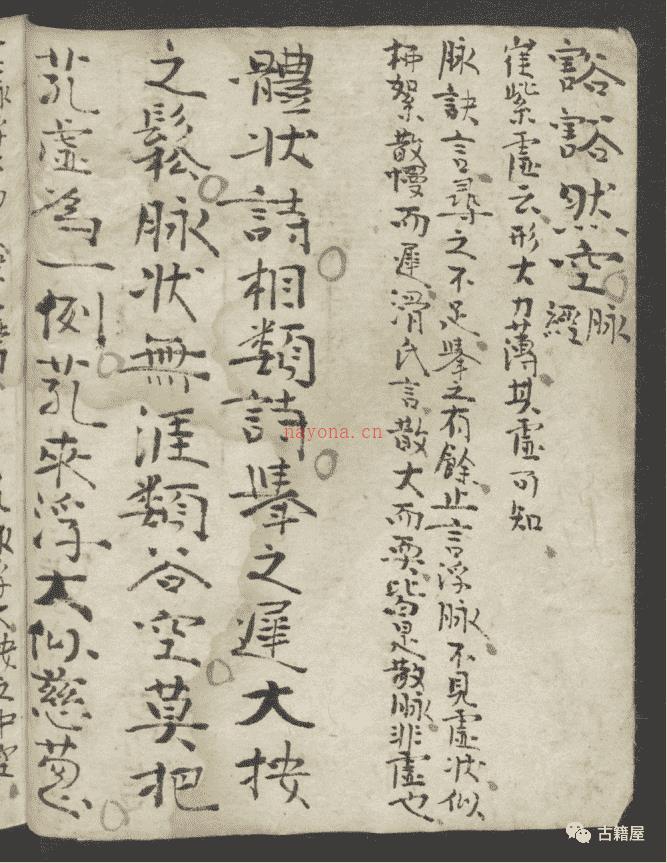 豁豁然空脉經
崔紫虛云形大力薄其虛可知
脉訣言尋之不足舉之有餘止言浮脉不見虛状似
柳絮散慢而遲滑氏言散大而耎皆是散脉非虛也
體状詩相類詩舉之遲大按
之鬆脉状無涯類谷空莫把
芤虛為一例芤來浮大似慈葱
nayona.cn
古籍屋